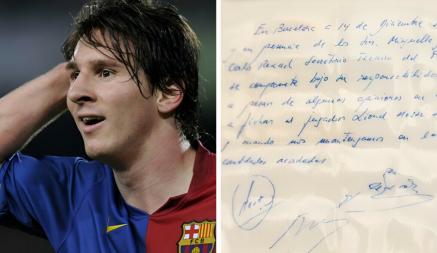 En Barcelona a 14 de Diciembre
y en presencia de los Srs. Minguella
Carlos Rexach Secretario Técnico del F
se compromete bajo su responsabilidad
a pesar de algunas opiniones en
a fichar al jugador Lionel Messi
y cuando nos mantengamos en las
cantidades acordadas
FCB